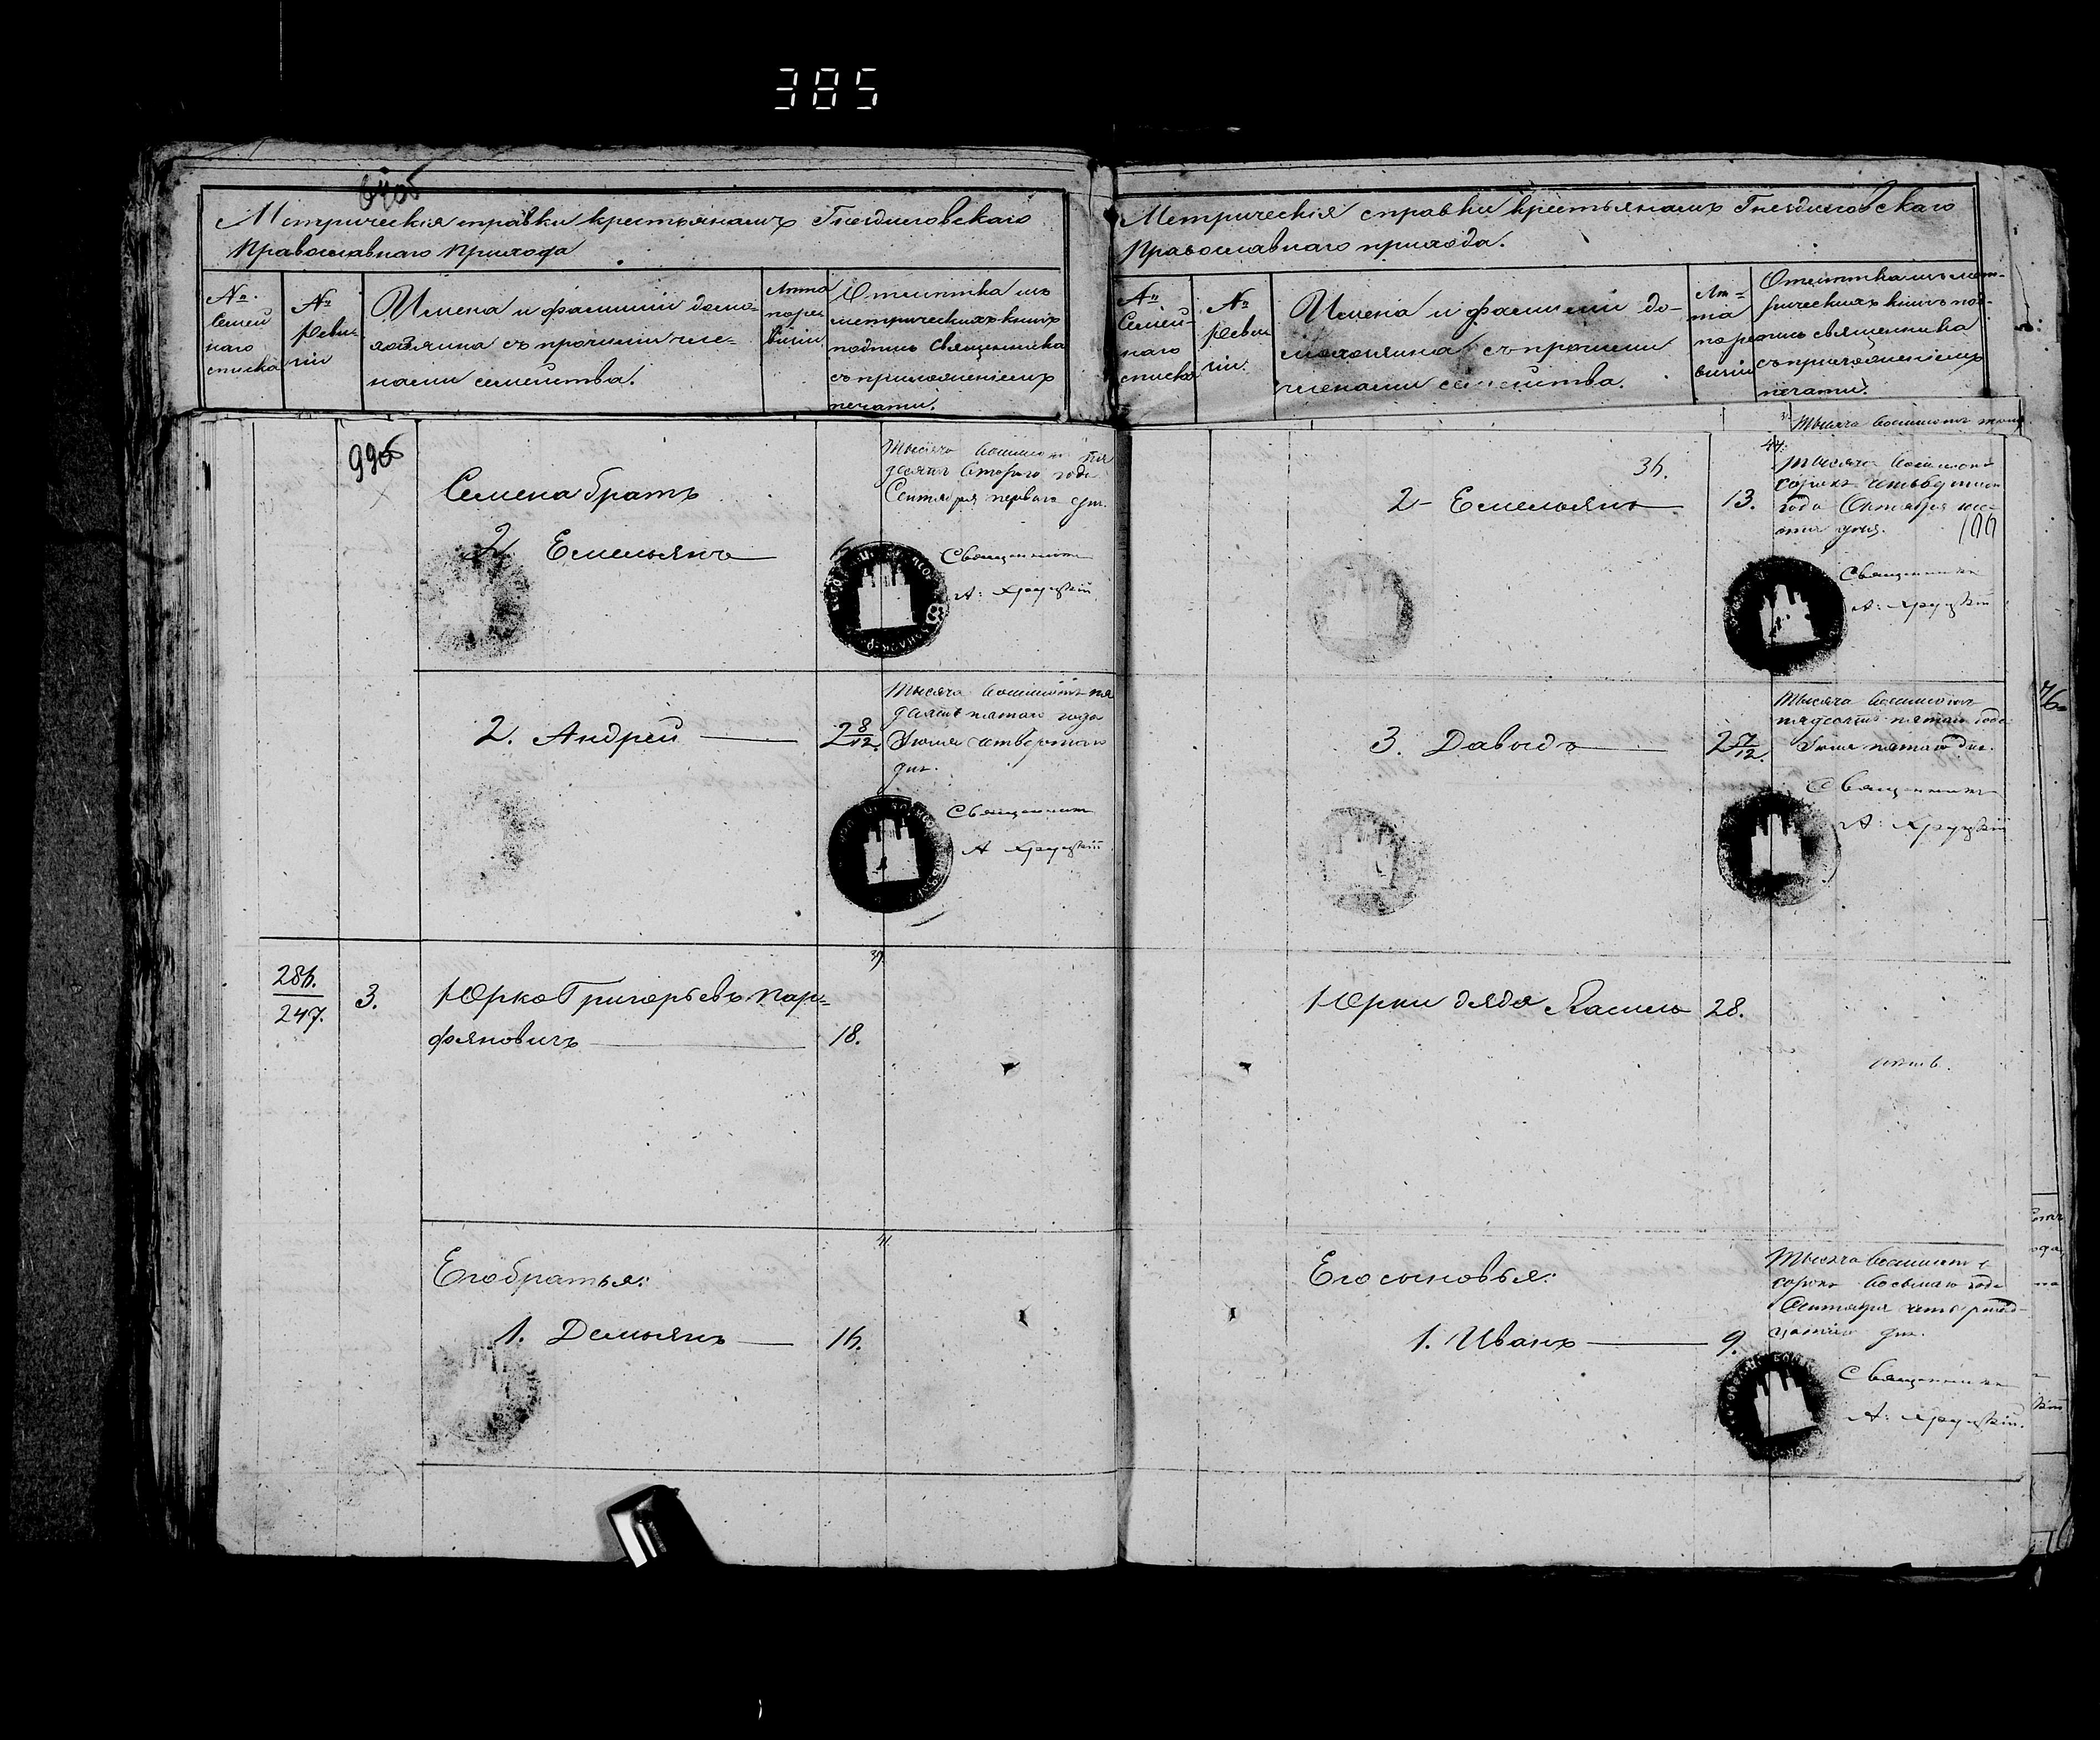 385
Метрическія справки крестьянамъ Гнездиловскаго
Православнаго Прихода
№
Семей
наго
списка
№
реви
зіи
Имена и фамиліи домо-
хозяина съ прочими чле-
нами семейства.
Лѣта
по ре
визіи
Отмѣтка изъ
метрическихъ книгъ
подпись Священника
съ приложеніемъ
печати.
990б
Семена братъ
2 Емельянъ
Тысяча восемьсотъ пя
десятъ втораго года
Сентября перваго дня.
Священникъ
А: Хруцкій
2. Андрей
2 8/12.
Тысяча восемьсотъ пя
десятъ пятаго года
Іюля четвертаго
дня.
Священникъ
А Хруцкій
286.
247.
3.
Юрко Григорьевъ Пар-
фяновичъ
18.
39
Его братья:
1. Демьянъ
16.
41.
Метрическія справки крестьянамъ Гнездиловскаго
Православнаго прихода.
№
Семей-
наго
списка
№
реви
зіи.
Имена и фамиліи до-
мохозяина съ прочими
членами семейства.
Лѣ-
та
по ре
визіи
Отмѣтка изъ мет-
рическихъ книгъ под-
пись священника
съ приложеніемъ
печати.
Тысяча восемьсотъ
36.
2 Емельянъ
13.
44.
Тысяча восемьсотъ
сорокъ четвертаго
года Октября шес-
таго дня.
Священникъ
А: Хруцкій
3. Давыдъ
2 7/12.
Тысяча восемьсотъ
пядесятъ пятаго года
Іюля пятаго дня.
Священникъ
А: Хруцкій
Юрки дядя
28.
Его сыновья:
1. Иванъ
9.
Тысяча восемьсотъ
сорокъ восьмаго года
Сентября четырнад-
цатаго дня.
Священникъ
А: Хруцкій.